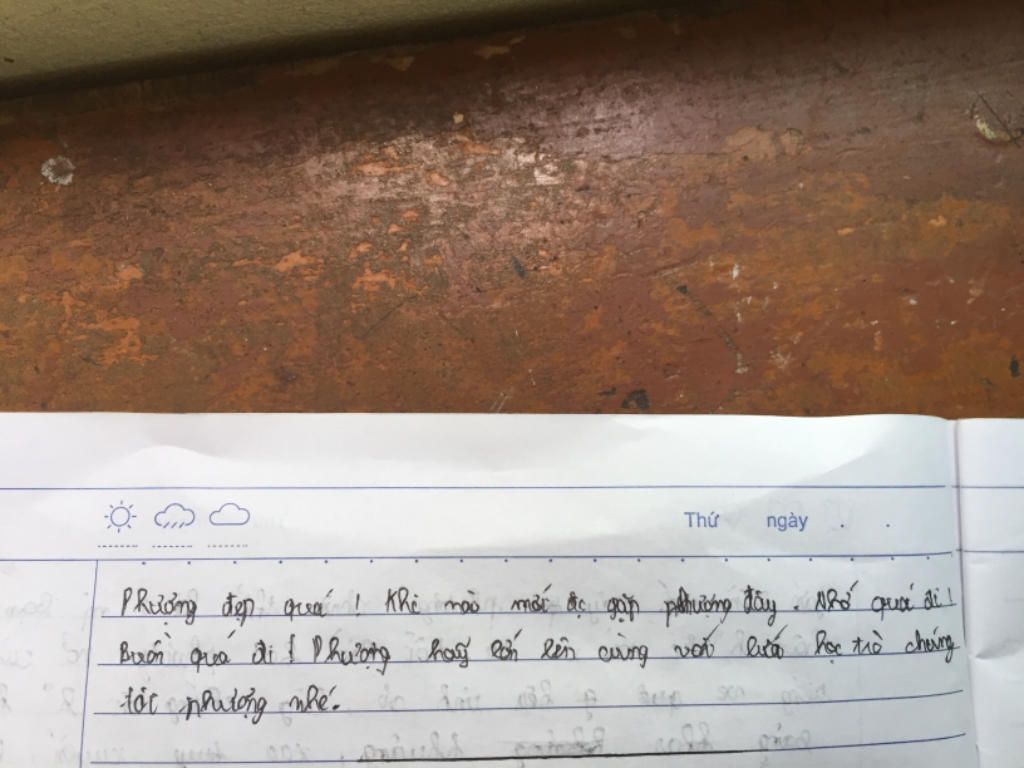 Thứ ngày . .
Phượng đẹp quá ! Khi nào mới đc gặp phượng đây . Nhớ quá đi !
Buồn quá đi ! Phượng hãy lớn lên cùng với lứa học trò chúng
tôi phượng nhé.